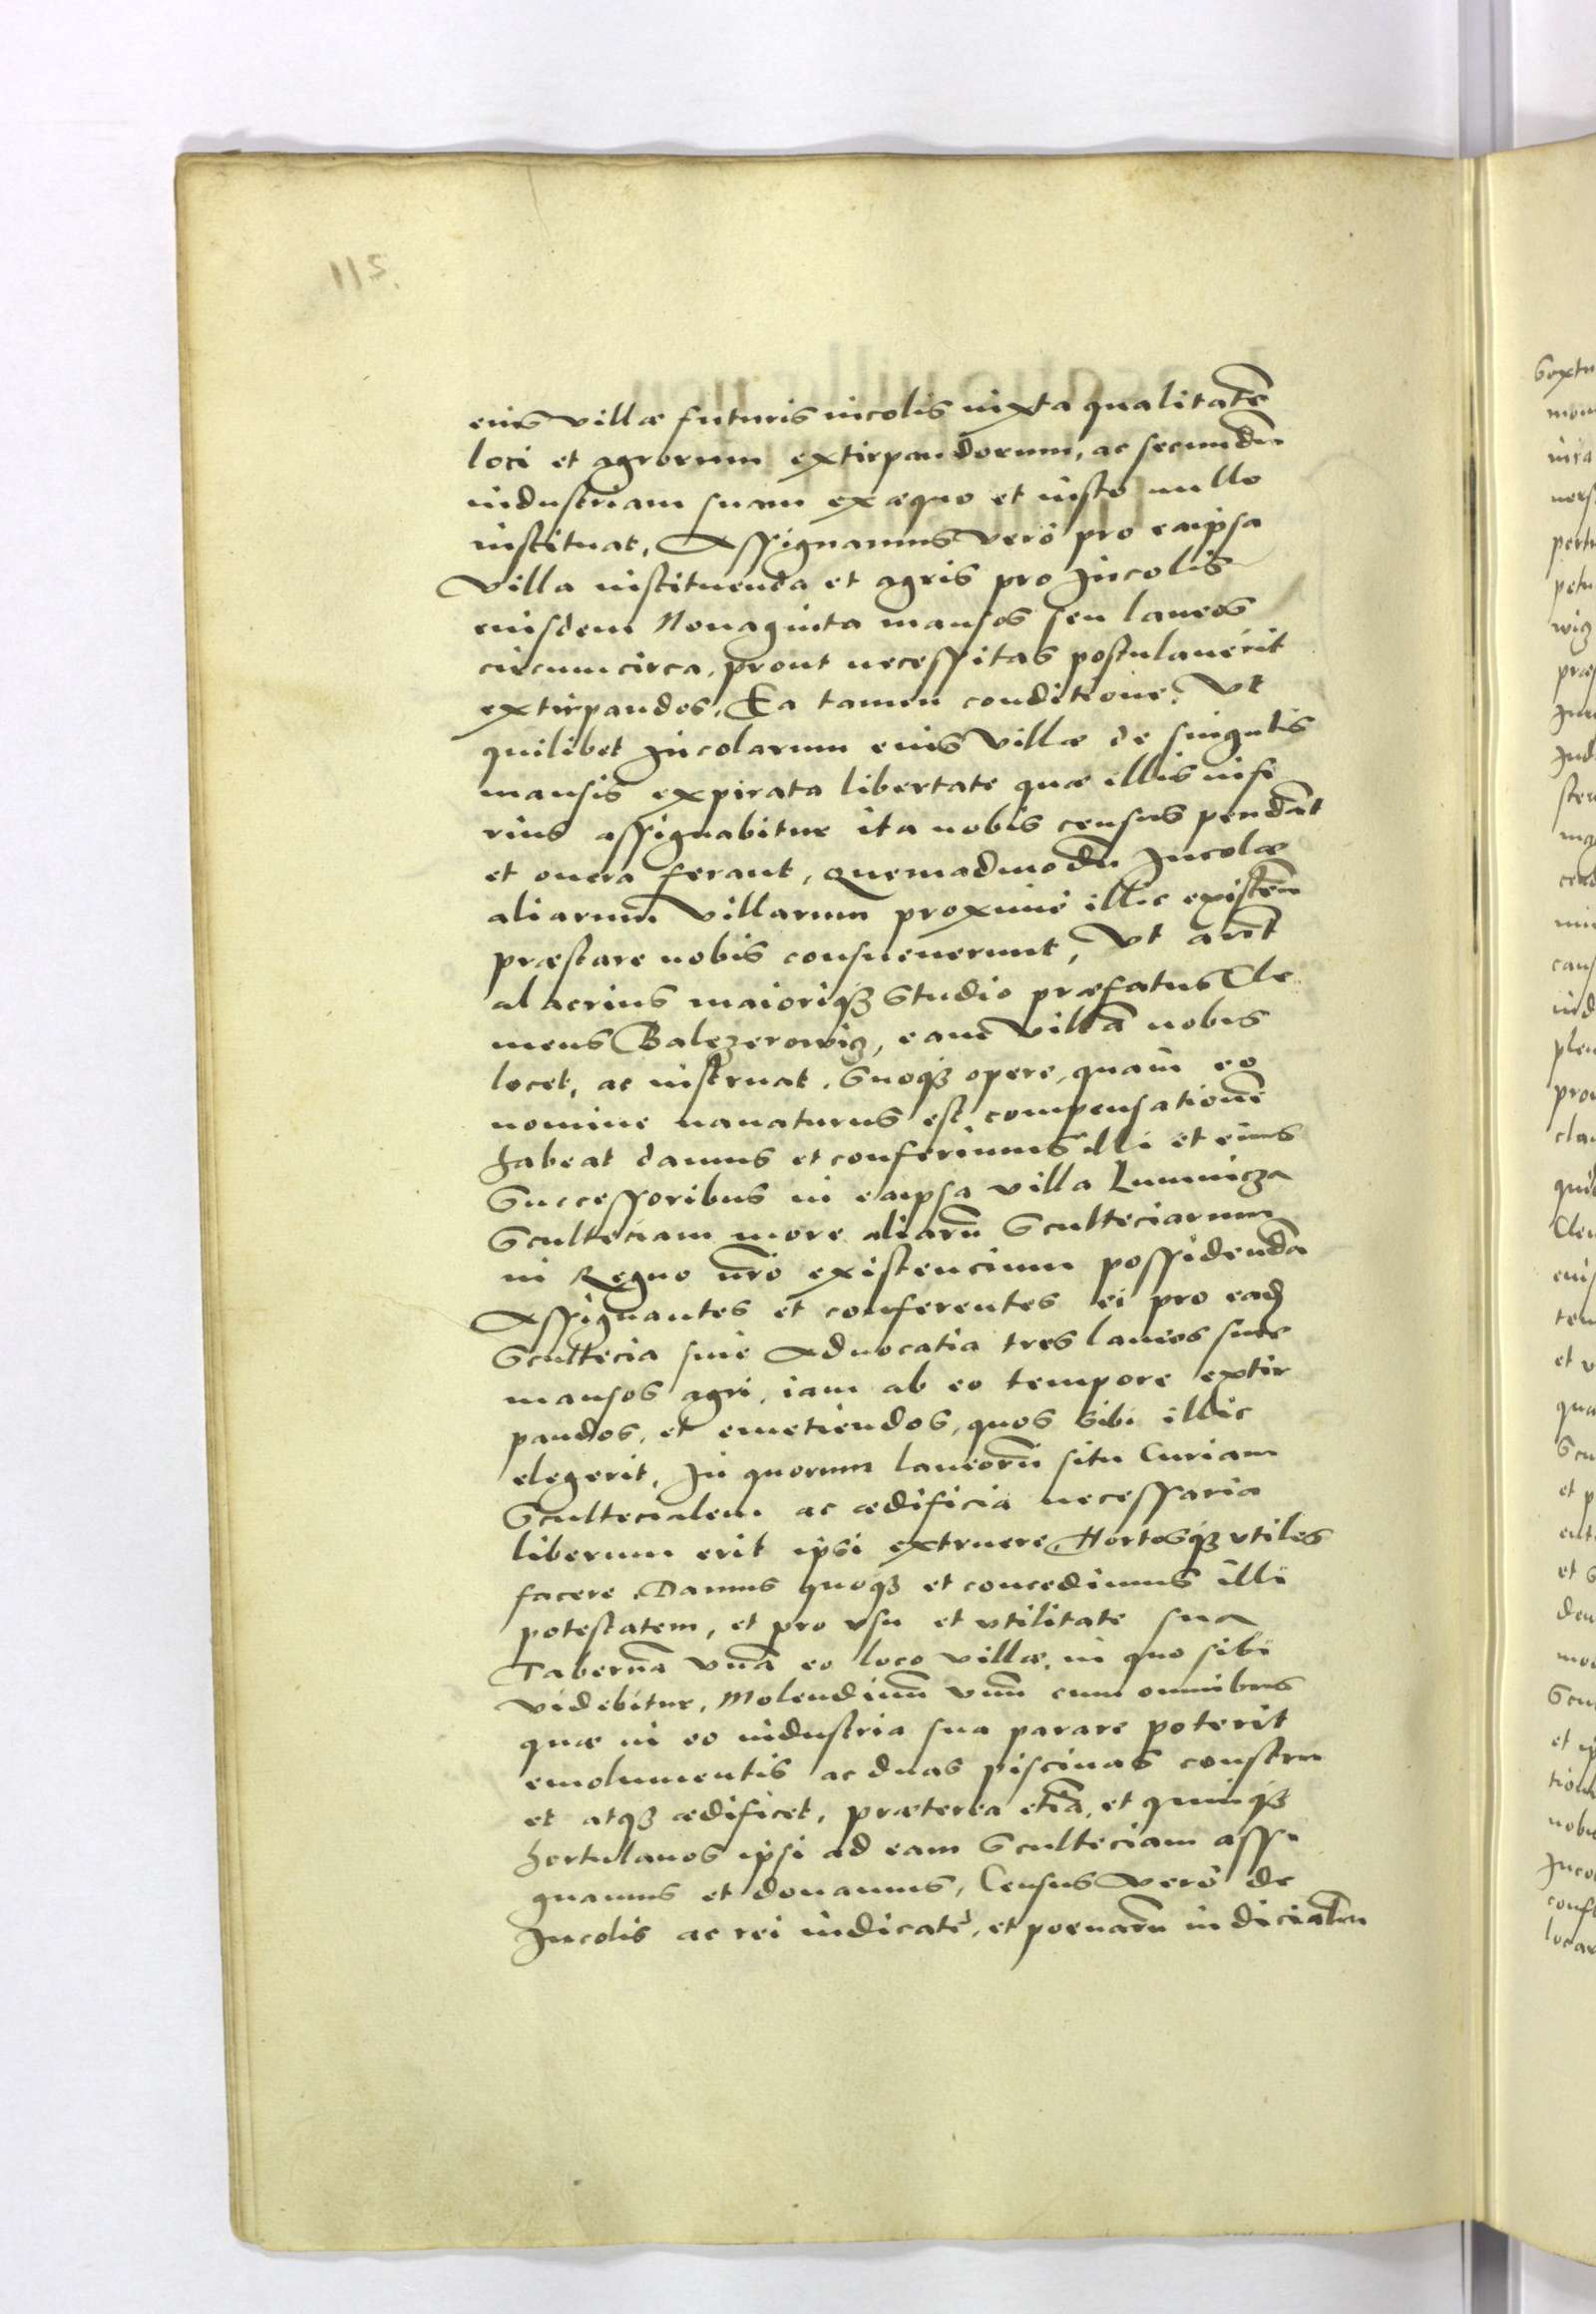 115.
eius villæ futuris incolis iuxta qualitatē
loci et agrorum extirpandorum, ac secundū
industriam suam ex æquo et iusto nullo
instituat, Assignamus verò pro eaipsa
Villa instituenda et agris pro Incolis
eiusdem Nonaginta mansos seu laneos
circumcirca, prout necessitas postulauerit
extirpandos, Ea tamen conditione, Vt
quilibet Incolarum eius Villæ de singulis
mansis expirata libertate quæ illis infe
rius assignabitur ita nobis census pendāt
et onera ferant, quemadmodū Incolæ
aliarum Villarum proximè illic existen̄
præstare nobis consueuerunt, Vt aūt
alacrius maioriqȝ Studio præfatus Cle
mens Balczerowicz, eam Villā nobis
locet, ac instruat, Suoqȝ opere, quam eo
nomine nauaturus est, compensationē
habeat damus et conferimus illi et eius
Successoribus in eaipsa villa Lumnicza
Scultetiam more aliarū Sculteciarum
in Regno nr̄o existencium possidendā
Assignantes et conferentes ei pro eadē
Scultecia siue Aduocatia tres laneos siue
mansos agri, iam ab eo tempore extir
pandos, et emetiendos, quos sibi illic
elegerit, In quorum laneorū situ Curiam
Scultecialem ac ædificia necessaria
liberum erit ipsi extruere, Hortosqȝ vtiles
facere, Damus quoqȝ et concedimus illi
potestatem, et pro vsu et vtilitate sua
Tabernā vnā eo loco villæ, in quo sibi
videbitur, Molendinū vnū cum omnibus
quæ in eo industria sua parare poterit
emolumentis ac duas piscinas constru
et atqȝ ædificet, præterea etiā, et quinqȝ
hortulanos ipsi ad eam Sculteciam assi
gnamus et donamus, Census verò de
Incolis ac rei iudicatę, et poenarū iudicialiū